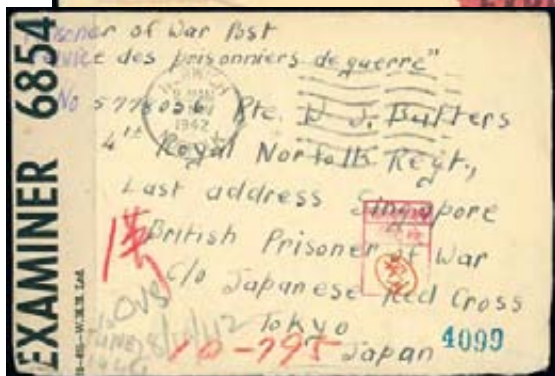 Prisoner of War Post
Service des prisonniers de guerre"
NORWICH
1942
No 5776056 Pte. W J. Butters
4th Royal Norfolk Regt.,
Last address Singapore
British Prisoner of War
C/o Japanese Red Cross
Tokyo
Japan
4099
10-795
EXAMINER 6854